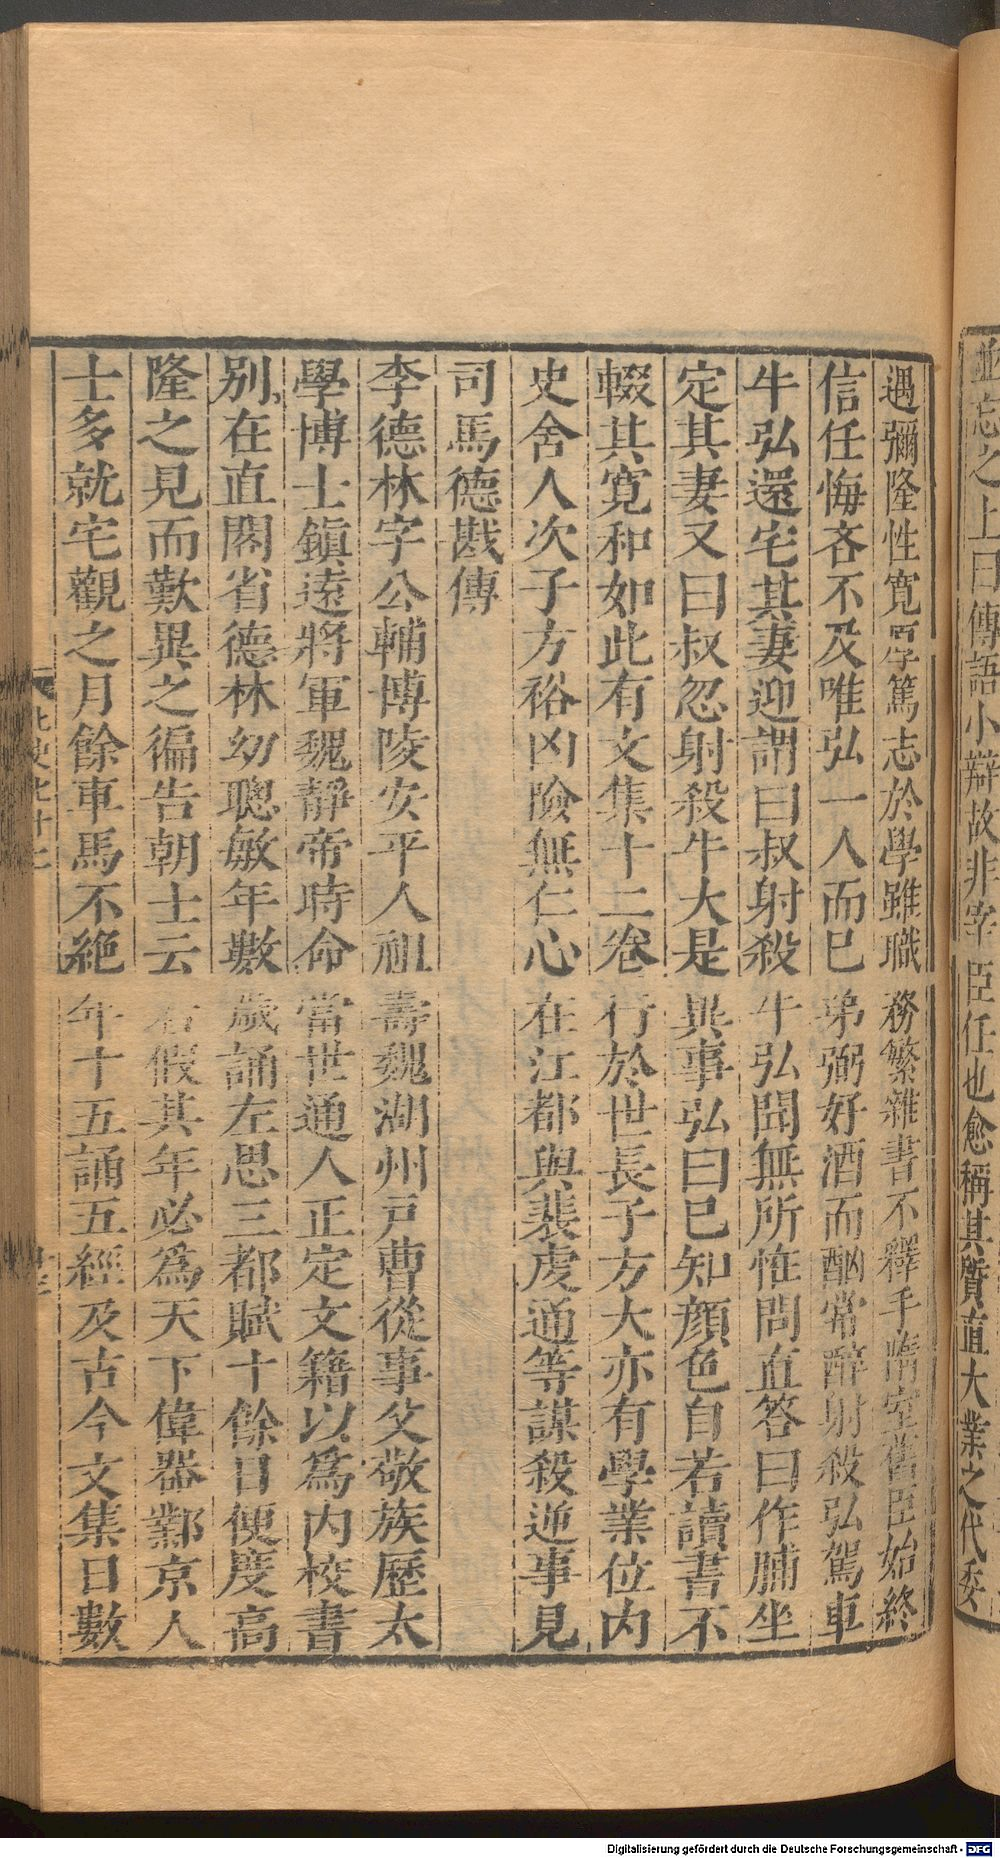 並忘之上曰傳語小辯故非宰臣任也愈稱其質直大業之代委
遇彌隆性寬厚篤志於學雖職務繁雜書不釋手隋室舊臣始終
信任悔吝不及唯弘一人而已弟弼好酒而酗常醉射殺弘駕車
牛弘還宅其妻迎謂曰叔射殺牛弘聞無所恠問直答曰作脯坐
定其妻又曰叔忽射殺牛大是異事弘曰已知顔色自若讀書不
輟其寛和如此有文集十二卷行於世長子方大亦有學業位内
史舍人次子方裕凶險無仁心在江都與裴虔通等謀殺逆事見
司馬德戡傳
李德林字公輔博陵安平人祖壽魏湖州戸曹從事父敬族歷太
學博士鎭遠將軍魏靜帝時命當世通人正定文籍以爲内校書
別在直閣省德林幼聰敏年數歲誦左思三都賦十餘日便度高
隆之見而歎異之徧告朝士云若假其年必爲天下偉器鄴京人
士多就宅觀之月餘車馬不絶年十五誦五經及古今文集日數
北史七十二
十三
Digitalisierung gefördert durch die Deutsche Forschungsgemeinschaft - DFG